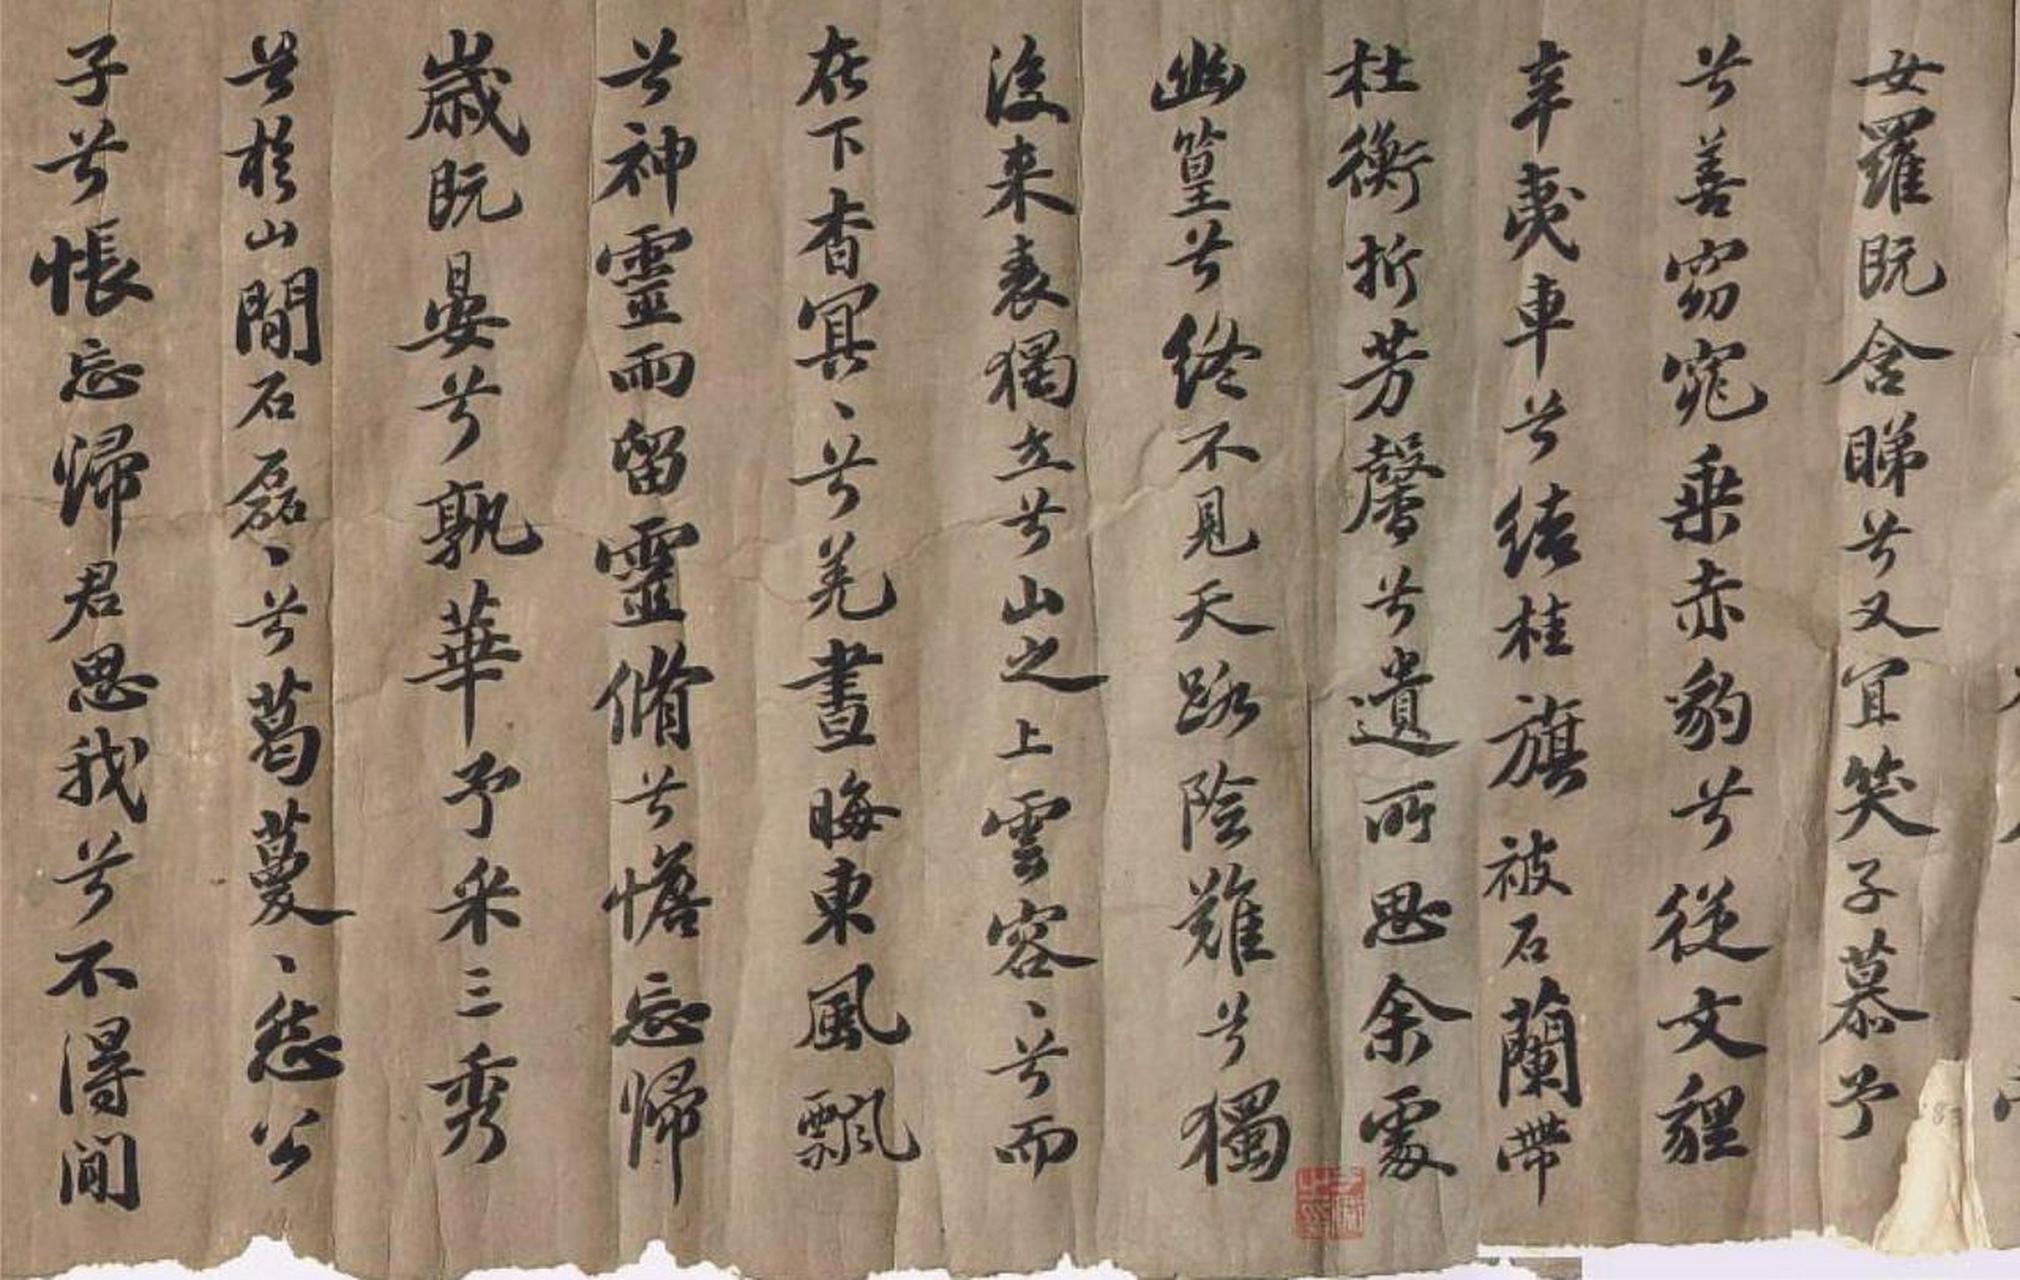 女羅既含睇兮又宜笑子慕予
兮善窈窕乗赤豹兮從文貍
辛夷車兮結桂旗被石蘭帶
杜衡折芳馨兮遺所思余處
幽篁兮終不見天路險難兮獨
後来表獨立兮山之上雲容〻兮而
在下杳冥〻兮羌晝晦東風飄
兮神靈雨留靈脩兮憺忘歸
歲既晏兮孰華予采三秀
兮於山間石磊〻兮葛蔓〻怨公
子兮悵忘歸君思我兮不得間